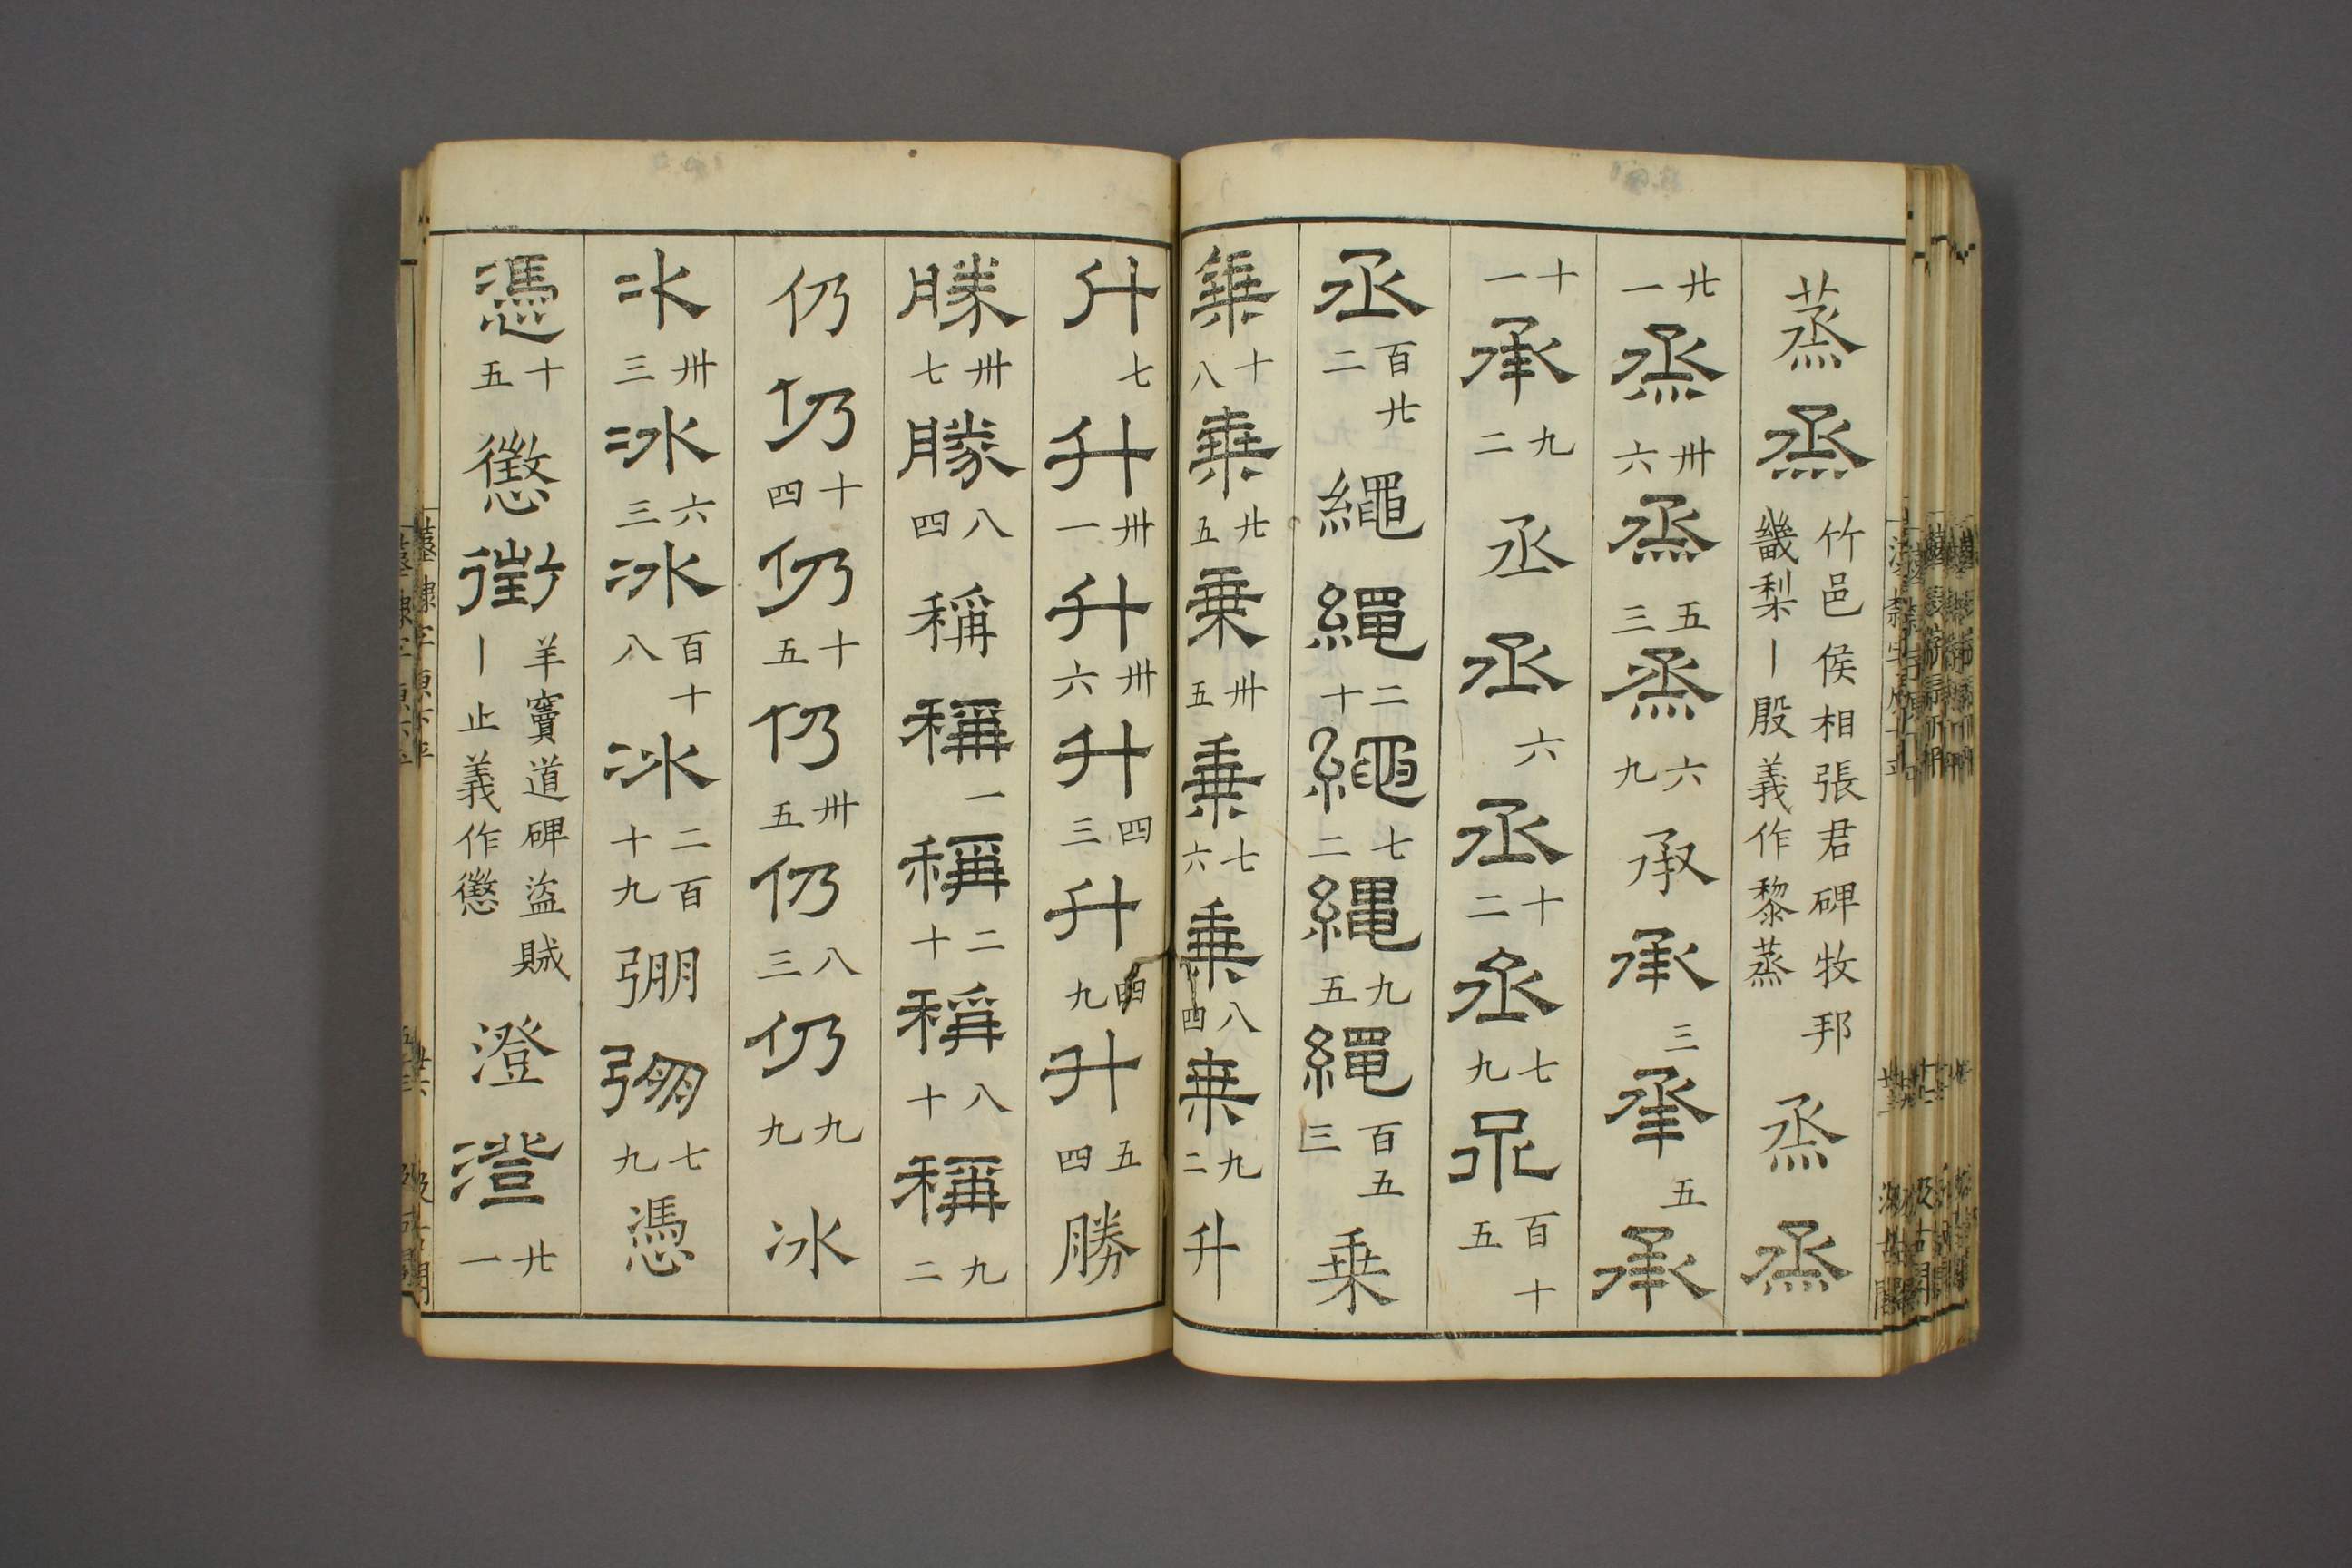 蒸 烝 竹邑侯相張君碑牧邦畿梨丨殷義作黎蒸 烝 烝
廿一 烝 卅六 烝 五三 烝 六九 承 承 三 承 五 承
十一 承 九二 丞 丞 六 丞 十二 丞 七九 丞 百十五
丞 百廿二 繩 繩 二十 繩 七二 繩 九五 繩 百五三 乗
乗 十八 乗 廿五 乗 卅五 乗 七六 乗 八四 乗 九二 升
升 七 升 卅一 升 卅六 升 四三 升 四九 升 五四 勝
勝 卅七 勝 八四 稱 稱 一 稱 二十 稱 八十 稱 九二
仍 仍 十四 仍 十五 仍 卅五 仍 八三 仍 九九 冰
冰 卅三 冰 六三 冰 百十八 冰 二百十九 弸 弸 七九 憑
憑 十五 懲 徵 羊竇道碑盜賊丨止義作懲 澄 澄 廿一